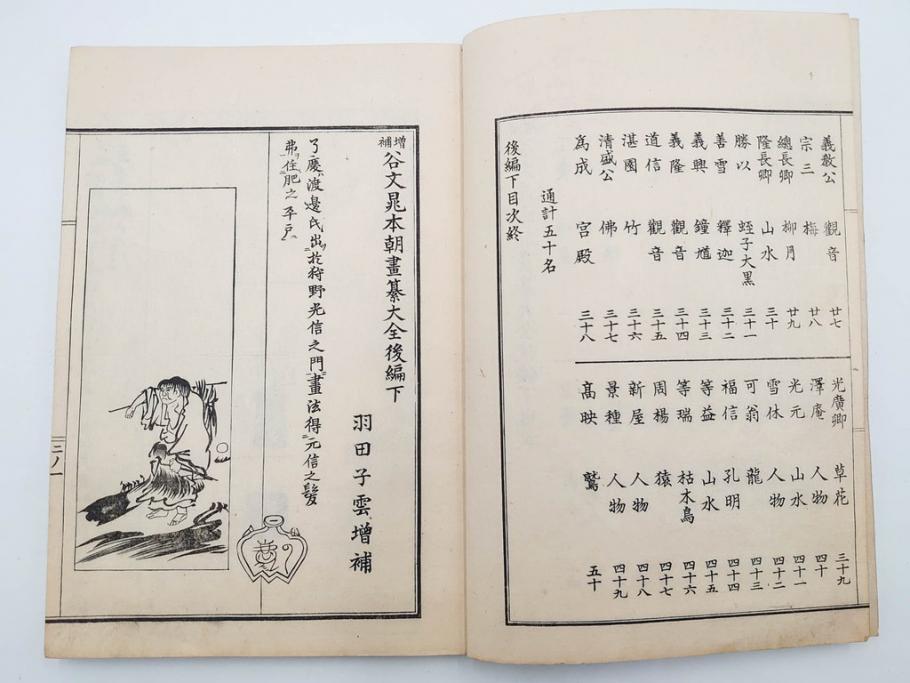 義教公　觀音　廿七
宗三　梅　廿八
總長卿　柳月　廿九
隆長卿　山水　三十
勝以　蛭子大黒　三十一
善雪　釋迦　三十二
義興　鐘馗　三十三
義隆　觀音　三十四
道信　觀音　三十五
湛園　竹　三十六
清盛公　佛　三十七
爲成　宮殿　三十八
光廣卿　草花　三十九
澤庵　人物　四十
光元　山水　四十一
雪休　人物　四十二
可翁　龍　四十三
福信　孔明　四十四
等益　山水　四十五
等瑞　枯木鳥　四十六
周楊　猿　四十七
新屋　人物　四十八
景種　人物　四十九
高映　鷲　五十
通計五十名
後編下目次終
增補谷文晁本朝畫纂大全後編下
羽田子雲增補
了慶渡邊氏出於狩野光信之門畫法得元信之髪
弗住肥之平戸
三ノ一